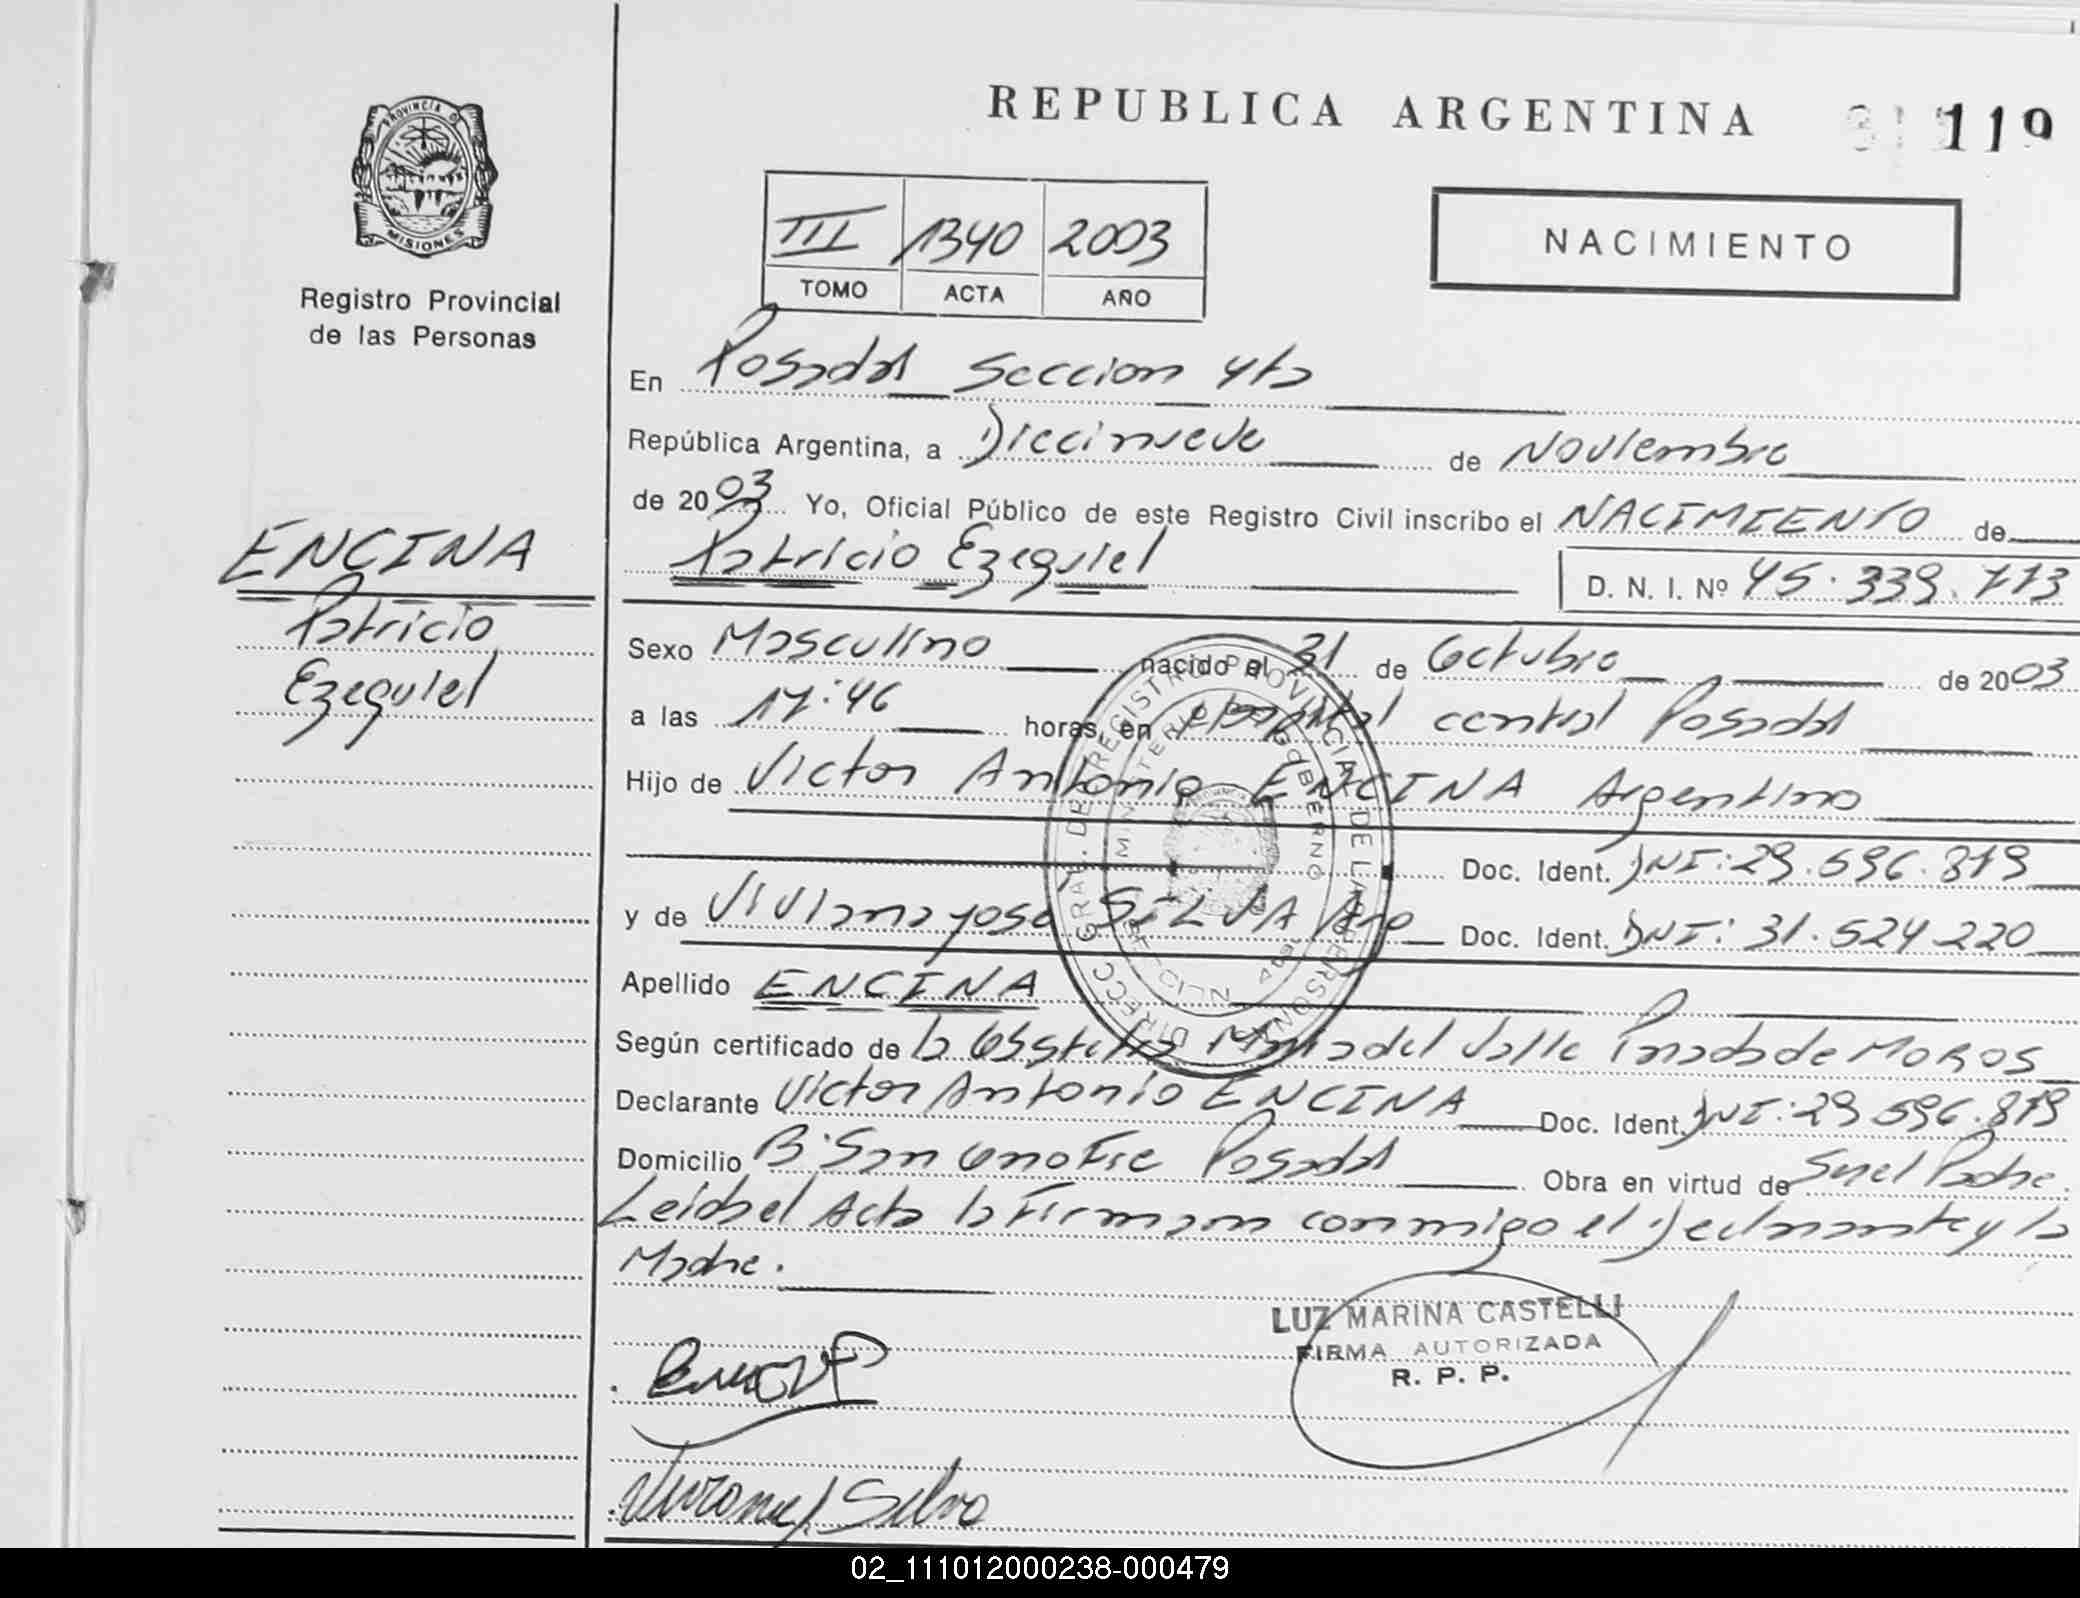 REPUBLICA ARGENTINA
119
PROVINCIA D
MISIONES
Registro Provincial
de las Personas
III 1340 2003
TOMO ACTA AÑO
NACIMIENTO
En Posadas Seccion 4ta
República Argentina, a Diecinueve de Noviembre
de 2003 Yo, Oficial Público de este Registro Civil inscribo el NACIMIENTO de
Patricio Ezequiel
D. N. I. Nº 45.339.773
ENCINA
Patricio
Ezequiel
Sexo Masculino nacido el 31 de Octubre de 2003
a las 17:46 horas, en Hospital central Posadas
Hijo de Victor Antonio ENCINA Argentino
Doc. Ident. DNI: 29.596.879
y de Viviana yose SILVA Arg Doc. Ident. DNI: 31.524 220
Apellido ENCINA
Según certificado de la Obstetra Maria del Valle de MOROS
Declarante Victor Antonio ENCINA Doc. Ident. DNI: 29 596.879
Domicilio B° San Onofre Posadas Obra en virtud de Ser el Padre.
Leida el Acta la Firman conmigo el Declarante y la
Madre.
LUZ MARINA CASTELLI
FIRMA AUTORIZADA
R. P. P.
Silva
DIRECC GRAL. DE REGISTRO PROVINCIAL DE LAS PERSONAS
MINISTERIO DE GOBIERNO
02_111012000238-000479